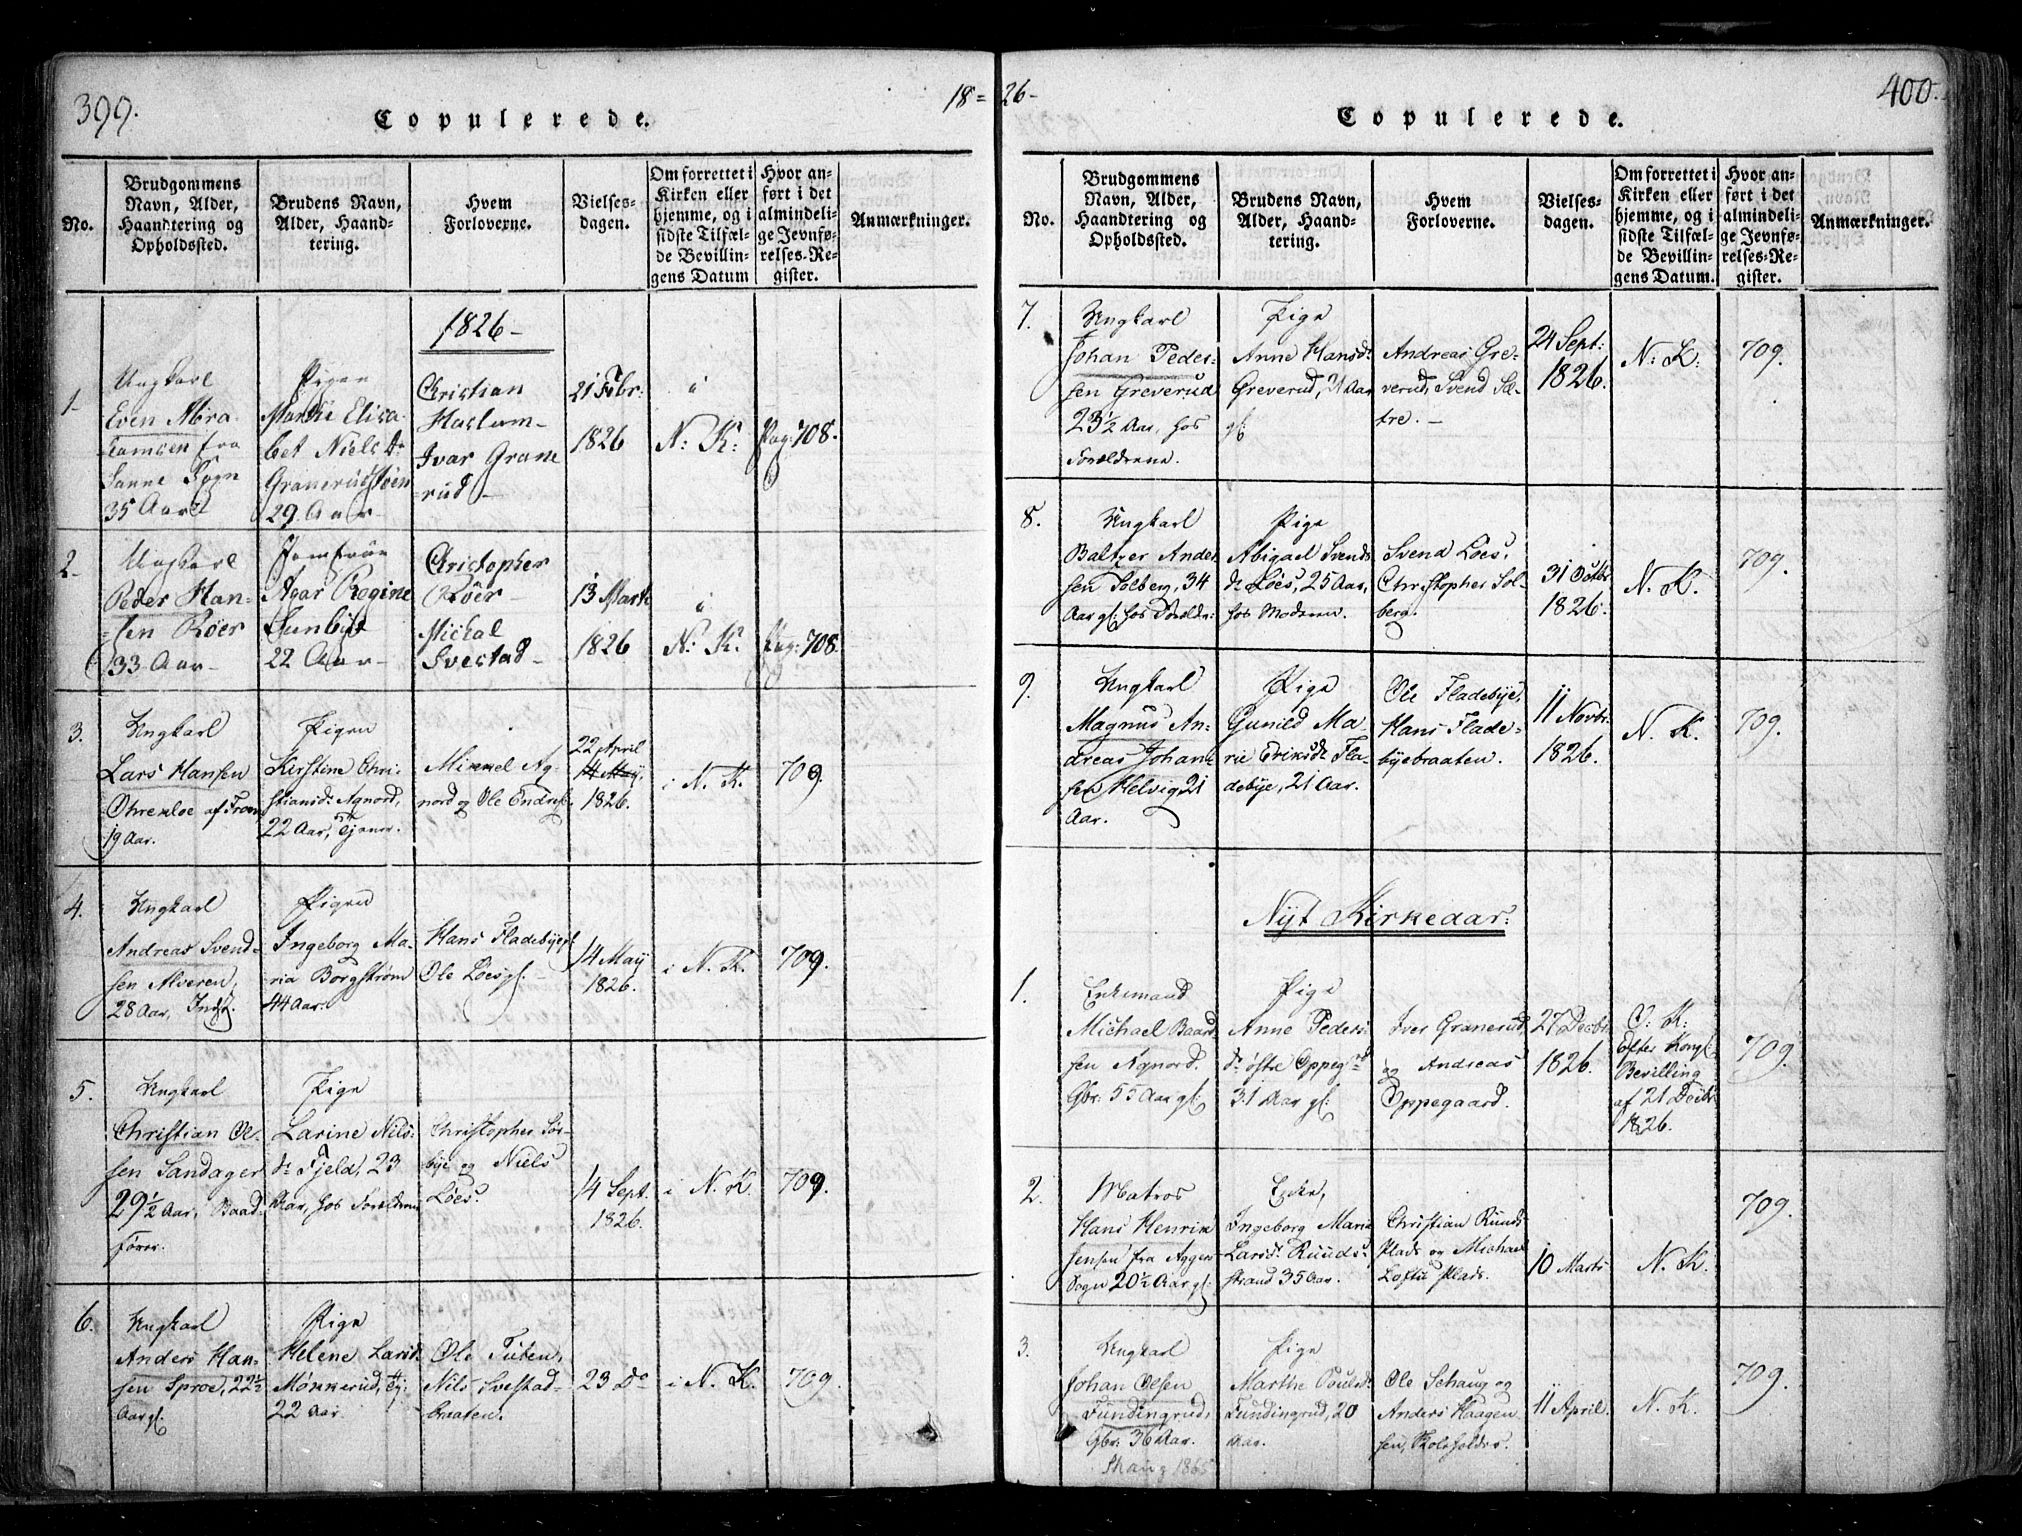 399.
Copulerede.
18=26-
No.
Brudgommens
Navn, Alder,
Haandtering og
Opholdssted.
Brudens Navn,
Alder, Haand-
tering.
Hvem
Forloverne.
Vielses-
dagen.
Om forrettet i
Kirken eller
hjemme, og i
sidste Tilfæl-
de Bevillin-
gens Datum
Hvor an-
ført i det
almindeli-
ge Jevnfø-
relses-Re-
gister.
Anmærkninger.
1826-
1-
Ungkarl
Even Abra
hamsen fra
Sanne Sogn
35 Aar
Pigen
Marthe Elisa
bet Niels Dr
29 Aar
Christian
Haslum-
Ivar Grane
rud-
21 Febr:
1826
i
N: K:
Pag: 708.
2-
Ungkarl
Peder Han-
sen Röer
33 Aar-
Jomfrue
Agar Regine
Sunbye
22 Aar-
Christopher
Röer-
Michal
Svestad-
13 Marti
1826
i
N: K.
Pag: 708.
3.
Ungkarl
Lars Hansen
19 Aar.
Pigen
Kirstine Chri-
stiansdr Agnord,
22 Aar, Tjener.
Mikkel Ag-
nord og Ole Endres.
22 April
14 May
1826.
i N. K.
709.
4.
Ungkarl
Andreas Svend-
sen Alveren,
28 Aar, Indst.
Pigen
Ingeborg Ma-
ria Borgstrøm
44 Aar.
Hans Fladebye
Ole Löes
14 May
1826.
i N. K.
709.
5.
Ungkarl
Christian Ol-
sen Sandager
29½ Aar, Baad-
fører.
Pige
Larine Nils-
dr Fjeld, 23
Aar, hos Forældrene
Christopher Sör-
bye og Niels
Löes.
14 Sept.
1826.
i N. K.
709.
6.
Ungkarl
Anders Han-
sen Sproe, 22½
Aar gl.
Pige
Helene Larsd.
Mönkerud, Tj:
22 Aar.
Ole Tuten,
Nils Svestad-
braaten.
23 Do
i N. K.
709.
400.
Copulerede.
No.
Brudgommens
Navn, Alder,
Haandtering og
Opholdssted.
Brudens Navn,
Alder, Haand-
tering.
Hvem
Forloverne.
Vielses-
dagen.
Om forrettet i
Kirken eller
hjemme, og i
sidste Tilfæl-
de Bevillin-
gens Datum.
Hvor an-
ført i det
almindeli-
ge Jevnfø-
relses-Re-
gister.
Anmærkninger.
7.
Ungkarl
Johan Peder-
sen Greverud
23½ Aar, hos
Forældrene.
Pige
Anne Hansd:
Greverud, 21 Aar
gl.
Andreas Gre-
verud, Svend Sæ-
tre.-
24 Sept:
1826.
N: K:
709.
8.
Ungkarl
Baltzer Ander
sen Solberg, 34
Aar gl: hos Forældr:
Pige
Abigael Svends
dr Löes, 25 Aar,
hos Moderen.
Svend Löes,
Christopher Sol-
berg.
31 Octbr
1826.
N. K.
709.
9.
Ungkarl
Magnus An-
dreas Johan-
sen Helvig, 21
Aar.
Pige
Gunild Ma-
rie Eriksdr Fla-
debye, 21 Aar.
Ole Fladebye,
Hans Flade-
byebraaten.
11 Novbr.
1826.
N. K.
709.
Nyt Kirkeaar:
1.
Enkemand
Michael Baard
sen Agnord.
Gbr: 55 Aar gl:
Pige
Anne Peders-
dr östre Oppegrd
31 Aar gl:
Iver Granerud,
og Andreas
Oppegaard.
27 Decbr.
1826.
O: K:
efter Kongl:
Bevilling
af 21 Decbr
1826.
709.
2.
Matros
Hans Henrik
Jensen fra Agger
Sogn 20½ Aar gl:
Enke,
Ingeborg Marie
Larsdr Ruuds-
strand 35 Aar.
Christian Ruuds
Plads og Michael
Lofts Plads.
10 Marts
N. K.
709.
3.
Ungkarl
Johan Olsen
Fundingrud,
Gbr: 36 Aar.
Skaug 1865
Pige
Marthe Poulsd:
Fundingrud, 20
Aar.
Ole Schaug og
Anders Haagen
sen, Skoleholder.
11 April.
N. K.
709.